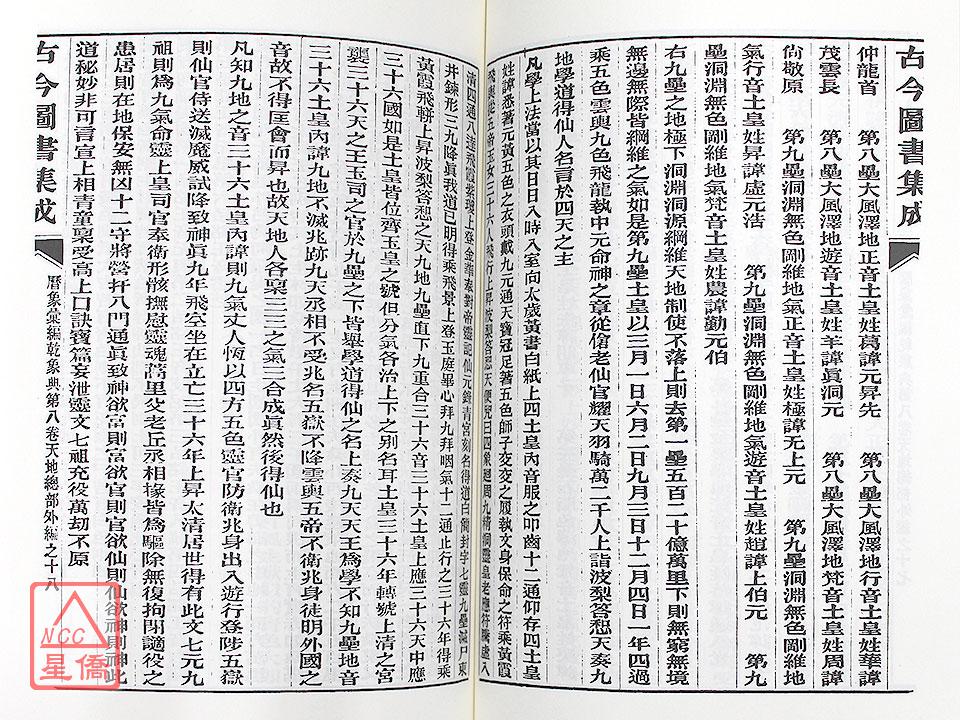 古今圖書集成
仲龍首 第八壘大風澤地正音土皇姓葛諱元昇先 第八壘大風澤地行音土皇姓華諱
茂雲長 第八壘大風澤地遊音土皇姓羊諱眞洞元 第八壘大風澤地梵音土皇姓周諱
尙敬原 第九壘洞淵無色剛維地氣正音土皇姓極諱无上元 第九壘洞淵無色剛維地
氣行音土皇姓昇諱虛元浩 第九壘洞淵無色剛維地氣遊音土皇姓趙諱上伯元 第九
壘洞淵無色剛維地氣梵音土皇姓農諱勤元伯
右九壘之地極下洞淵洞源綱維天地制使不落上則去第一壘五百二十億萬里下則無窮無境
無邊無際皆綱維之氣如是第九壘土皇以三月一日六月二日九月三日十二月四日一年四過
乘五色雲輿九色飛龍執中元命神之章從儉老仙官耀天羽騎萬二千人上詣波梨答惒天奏九
地學道得仙人名言於四天之主
凡學上法當以其日日入時入室向太歲黃書白紙上四土皇內音服之叩齒十二通仰存四土皇
姓諱悉著元黃五色之衣頭戴九元通天寶冠足著五色師子交文之履執文身保命之符乘黃霞
飛輿從五帝玉女三十六人飛行上昇波梨答惒天便呪曰四象廻周九精洞靈皇老應符騰虛入
淸四通八達飛霞瓊上登金華奏對帝靈記仙元錄靑宮刻名得道白簡封字七靈九壘滅尸東
井鍊形三九降眞我道已明得乘飛景上登玉庭畢心拜九拜咽氣十二通止行之三十六年得乘
黃霞飛輧上昇波梨答惒之天九地九壘直下九重合三十六音三十六土皇上應三十六天中應
三十六國如是土皇皆位齊玉皇之號但分氣各治上下之別名耳土皇三十六年轉號上清之宮
襲三十六天之王玉司之官於九壘之下皆舉學道得仙之名上奏九天天王爲學不知九壘地音
三十六土皇內諱九地不滅兆跡九天丞相不受兆名五嶽不降雲輿五帝不衛兆身徒明外國之
音故不得匡會而昇也故天地人各稟三三之氣三合成眞然後得仙也
凡知九地之音三十六土皇內諱則九氣丈人恆以四方五色靈官防衛兆身出入遊行登陟五嶽
則仙官侍送滅魔威試降致神眞九年飛空坐在立亡三十六年上昇太清居世得有此文七元九
祖則爲九氣命靈上皇司官奉衛形骸撫慰靈魂蒿里父老丘丞相掾皆爲驅除無復拘閉謫役之
患居則在地保安無凶十二守將營扞八門通眞致神欲富則富欲官則官欲仙則仙欲神則神此
道秘妙非可言宣上相青童稟受高上口訣寶篇妄泄靈文七祖充役萬劫不原
古今圖書集成
曆象彙編乾象典第八卷天地總部外編之十八
NCC
星僑